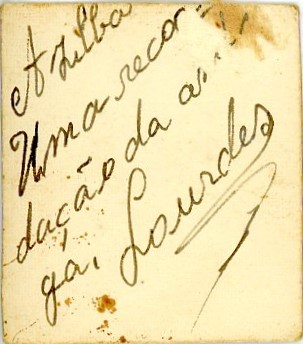 A Zilba
Uma recor-
dação da ami-
gá, Lourdes